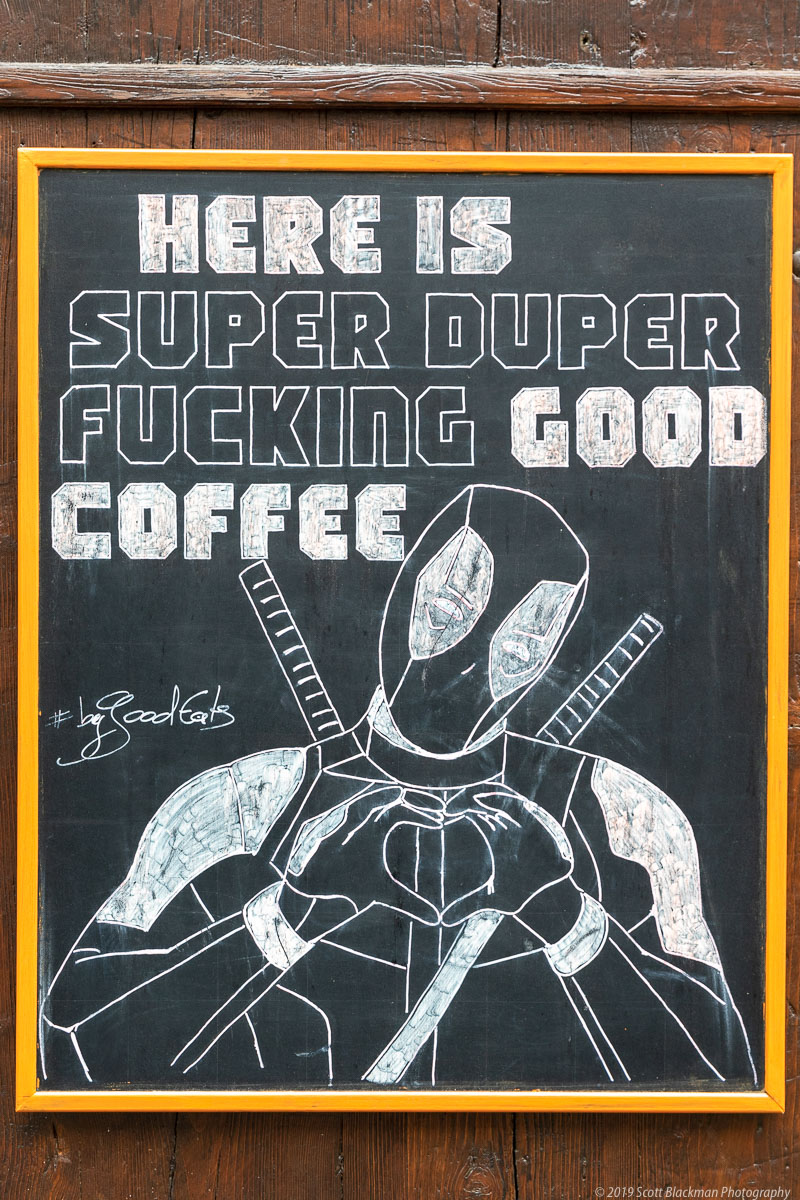 HERE IS
SUPER DUPER
FUCKING GOOD
COFFEE
#byGoodEats
© 2019 Scott Blackman Photography